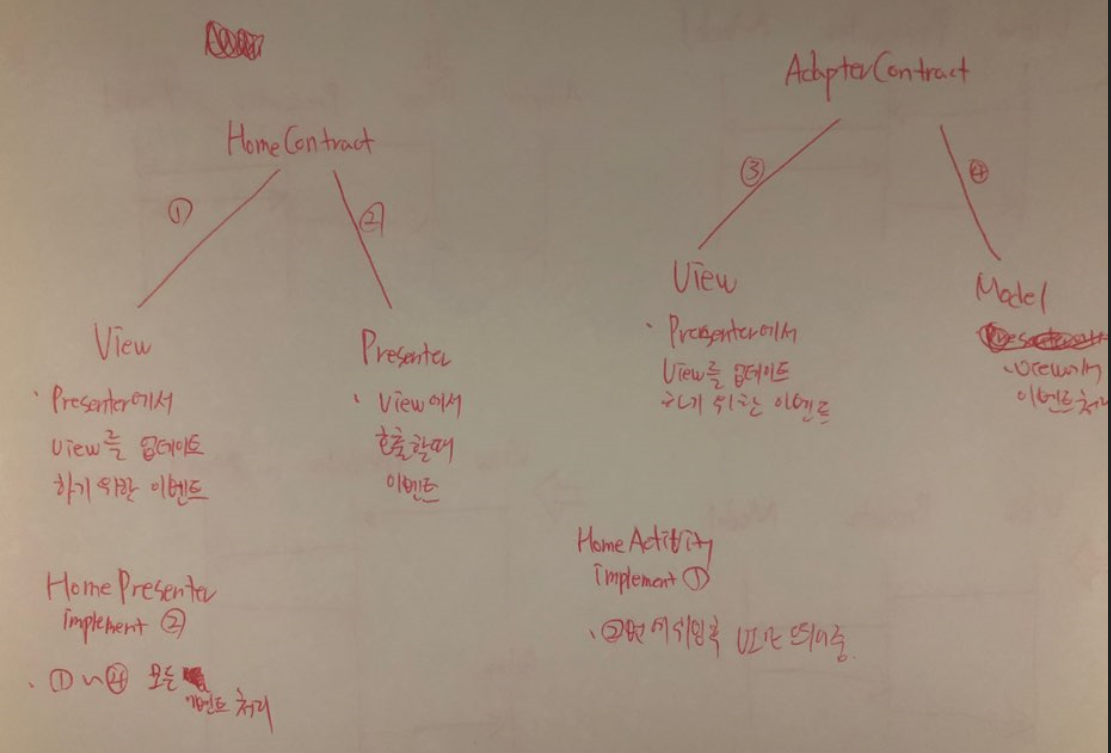 HomeContract
①
②
View
· Presenter에서
View를 업데이트
하기 위한 이벤트
Presenter
· View에서
호출할때
이벤트
AdapterContract
③
④
View
· Presenter에서
View를 업데이트
하기 위한 이벤트
Model
· View에서
이벤트 처리
HomePresenter
implement ②
· ① ~ ④ 모든
이벤트 처리
HomeActivity
implement ①
· ②번에 위임 후 UI만 띄어줌.